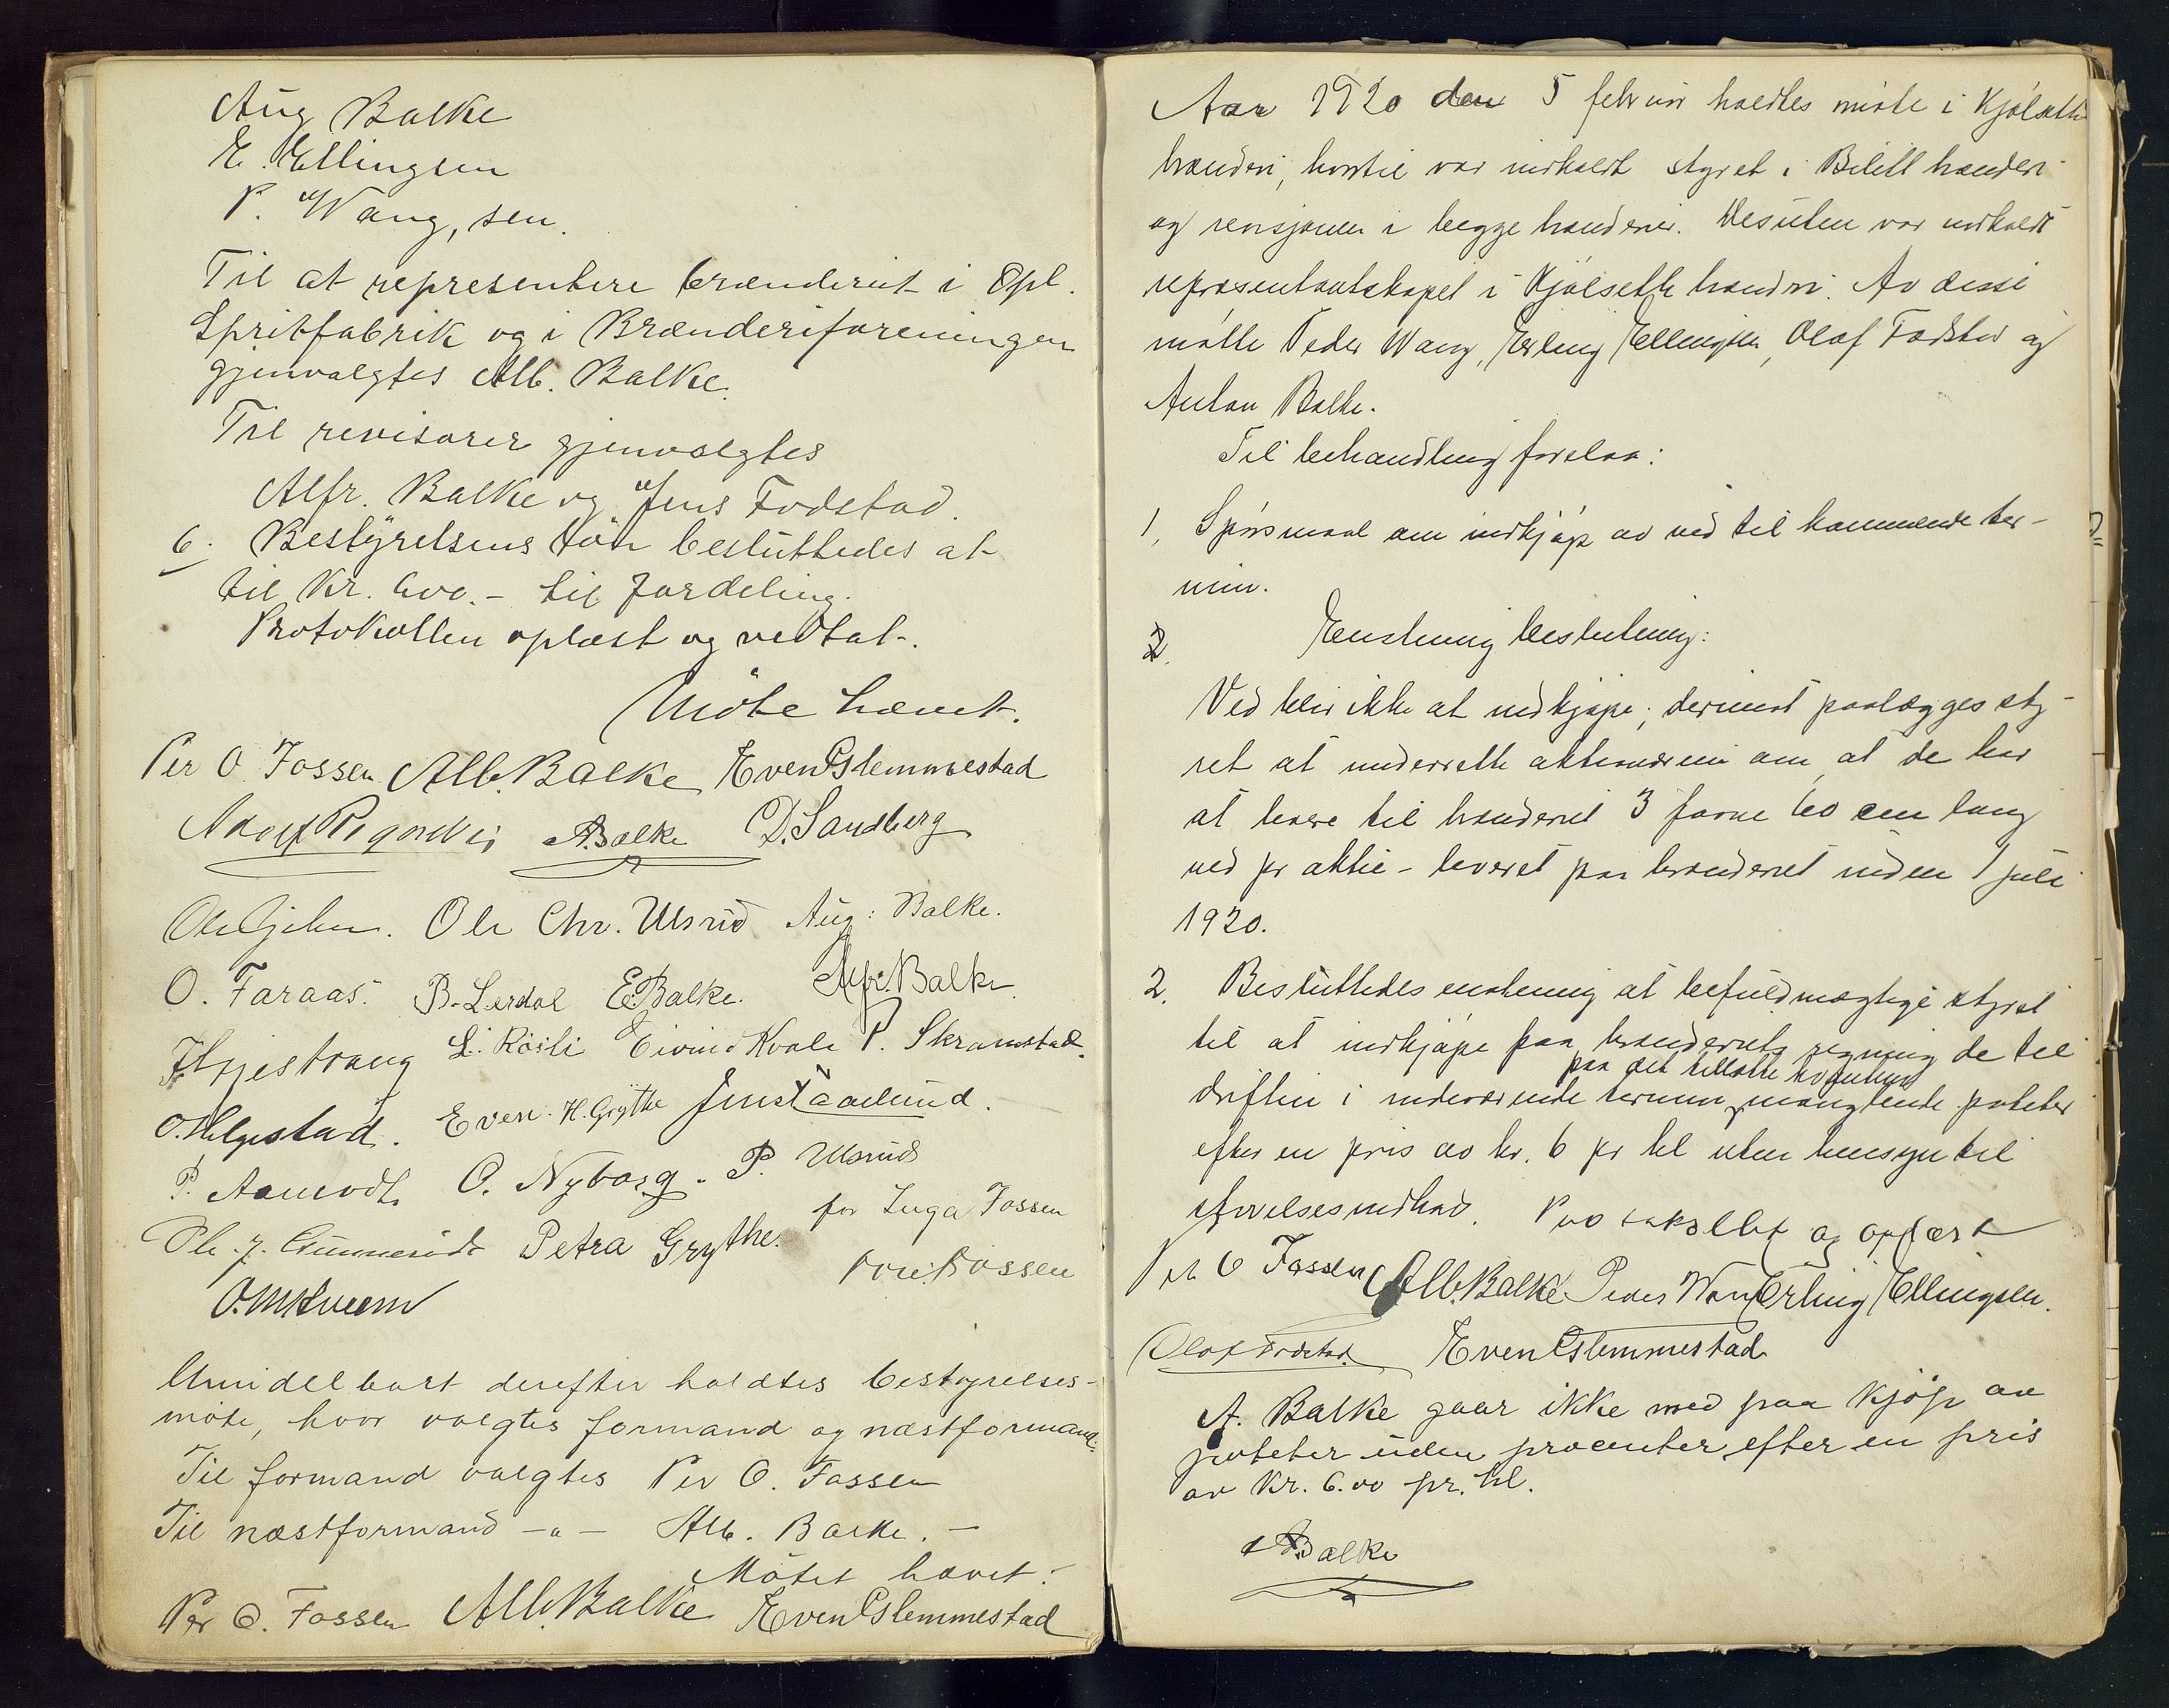 Aug Balke
E. Ellingsen
P. Wang, sen.
Til at representere brænderiet i Opl.
Spritfabrik og i Brænderiforeningen
gjenvalgtes Alb. Balke.
Til revisorer gjenvalgtes
Alfr. Balke og Jens Fodstad.
6. Bestyrelsens lön besluttedes at
til Kr. 600.- til fordeling.
Protokollen oplæst og vedtat.
Möte hævet.
Per O Fossen Alb. Balke Even Oslemmestad
A. Balke D. Sandberg
Ole Gjelen. Ole Chr. Ulsrud Aug: Balke.
O. Faraas. B. Lerdal E. Balke. Alfr. Balke
L. Røsli Eivind Kvale P. Skramstad.
O. Helgestad. Even H. Grythe Jens Taarlund.
P. Aamodt O. Nyborg. P. Ulsrud
Ole J. Gunnerud Petra Grythe. for Inga Fossen
Fossen
Umiddelbart derefter holdtes bestyrelses-
möte, hvor valgtes formand og næstformand.
Til formand valgtes Per O. Fossen
Til næstformand -"- Alb. Balke. -
Mötet hævet.
Per O. Fossen Alb. Balke Even Oslemmestad
Aar 1920 den 5 februar holdtes möte i Kjölseth
brænderi, hvortil var indkaldt styret i Bilitt brænderi
og revisjonen i begge brænderier. Desuten var indkaldt
representantskapet i Kjölseth brænderi. Av disse
mötte Peder Wang, Erling Ellingsen, Olaf Fodstad og
Anton Balke.
Til behandling forelaa:
1, Spörsmaal om indkjöp av ved til kommende ter-
min.
2. Enstemmig beslutning:
Ved blir ikke at indkjöpe; derimot paalægges sty-
ret at underrette aktionærene om, at de har
at levere til brænderiet 3 favne 60 cm lang
ved pr aktie - leveret paa brænderiet inden 1 juli
1920.
2. Besluttedes enstemmig at befuldmægtige styret
til at indkjöpe paa brænderiets regning de til
paa det tillatte kvantum
driften i indeværende termin manglende poteter
efter en pris av kr. 6 pr hl uten hensyn til
stivelsesindhold. Protokollet og oplæst
Per O Fossen Alb. Balke Peder Wang Erling Ellingsen.
Olaf Fodstad. Even Oslemmestad
A. Balke gaar ikke med paa Kjöp av
poteter uden procenter efter en pris
av Kr. 6.00 pr. hl.
A Balke